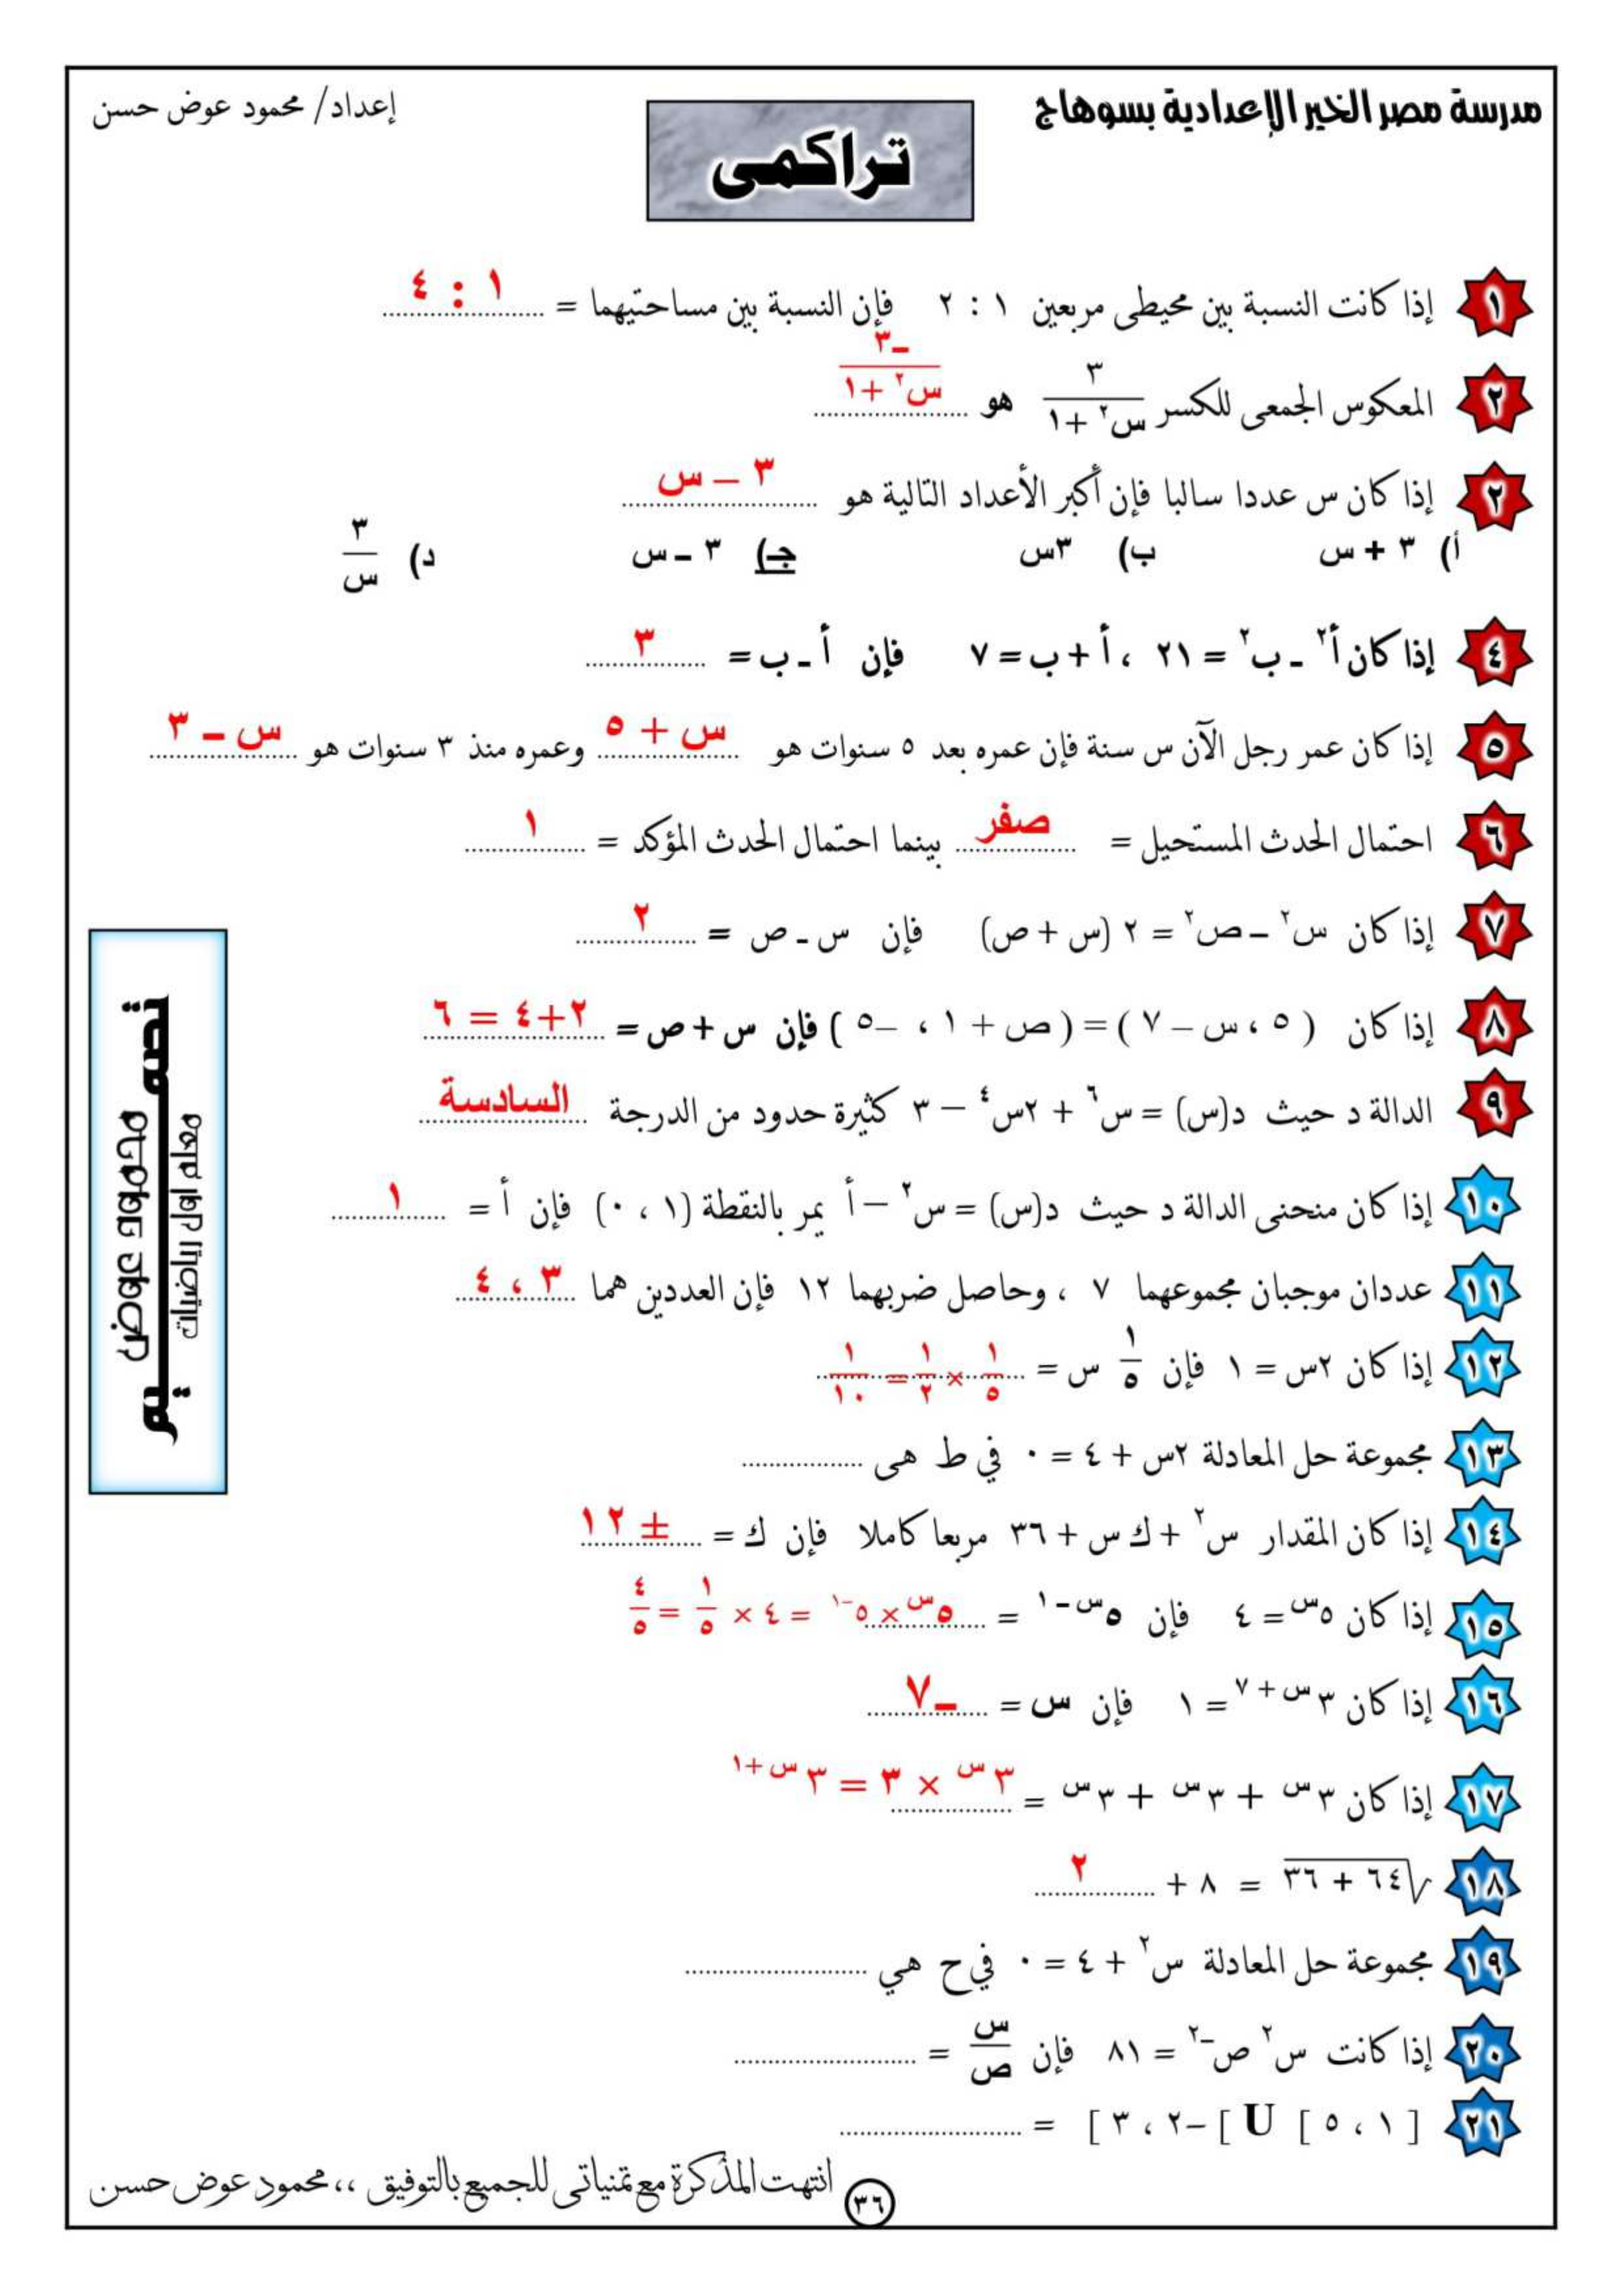 مدرسة مصر الخير الإعدادية بسوهاج
إعداد/ محمود عوض حسن
تراكمى
١ إذا كانت النسبة بين محيطى مربعين ١ : ٢ فإن النسبة بين مساحتيهما = ١ : ٤
٢ المعكوس الجمعى للكسر ٣/(س² + ١) هو −٣/(س² + ١)
٢ إذا كان س عددا سالبا فإن أكبر الأعداد التالية هو ٣ – س
أ) ٣ + س ب) ٣س جـ) ٣ - س د) ٣/س
٤ إذا كان أ² - ب² = ٢١ ، أ + ب = ٧ فإن أ - ب = ٣
٥ إذا كان عمر رجل الآن س سنة فإن عمره بعد ٥ سنوات هو س + ٥ وعمره منذ ٣ سنوات هو س – ٣
٦ احتمال الحدث المستحيل = صفر بينما احتمال الحدث المؤكد = ١
٧ إذا كان س² – ص² = ٢ (س + ص) فإن س - ص = ٢
٨ إذا كان ( ٥ ، س – ٧ ) = ( ص + ١ ، –٥ ) فإن س + ص = ٢+٤ = ٦
٩ الدالة د حيث د(س) = س⁶ + ٢س⁴ – ٣ كثيرة حدود من الدرجة السادسة
١٠ إذا كان منحنى الدالة د حيث د(س) = س² – أ يمر بالنقطة (١ ، ٠) فإن أ = ١
١١ عددان موجبان مجموعهما ٧ ، وحاصل ضربهما ١٢ فإن العددين هما ٣ ، ٤
١٢ إذا كان ٢س = ١ فإن ١/٥ س = ١/٥ × ١/٢ = ١/١٠
١٣ مجموعة حل المعادلة ٢س + ٤ = ٠ في ط هى ..................
١٤ إذا كان المقدار س² + ك س + ٣٦ مربعا كاملا فإن ك = ± ١٢
١٥ إذا كان ٥^س = ٤ فإن ٥^(س-١) = ٥^س × ٥^(-١) = ٤ × ١/٥ = ٤/٥
١٦ إذا كان ٣^(س + ٧) = ١ فإن س = –٧
١٧ إذا كان ٣^س + ٣^س + ٣^س = ٣^س × ٣ = ٣^(س+١)
١٨ √(٦٤ + ٣٦) = ٨ + ٢
١٩ مجموعة حل المعادلة س² + ٤ = ٠ في ح هي ..........................
٢٠ إذا كانت س² ص^(–٢) = ٨١ فإن س/ص = ..........................
٢١ [ ١ ، ٥ [ U ] –٢ ، ٣ ] = ..........................
معلم أول رياضيات
انتهت المذكرة مع تمنياتى للجميع بالتوفيق ،، محمود عوض حسن
٣٦